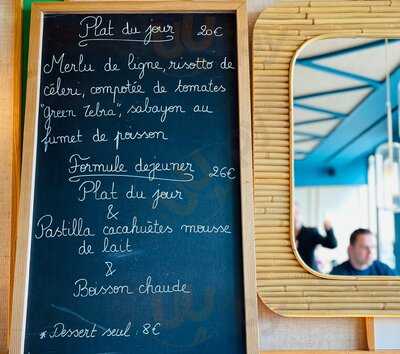 Plat du jour 20€
Merlu de ligne, risotto de
céleri, compotée de tomates
"Green Zebra", sabayon au
fumet de poisson
Formule dejeuner 26€
Plat du jour
&
Pastilla cacahuètes mousse
de lait
&
Boisson chaude
* Dessert seul : 8€